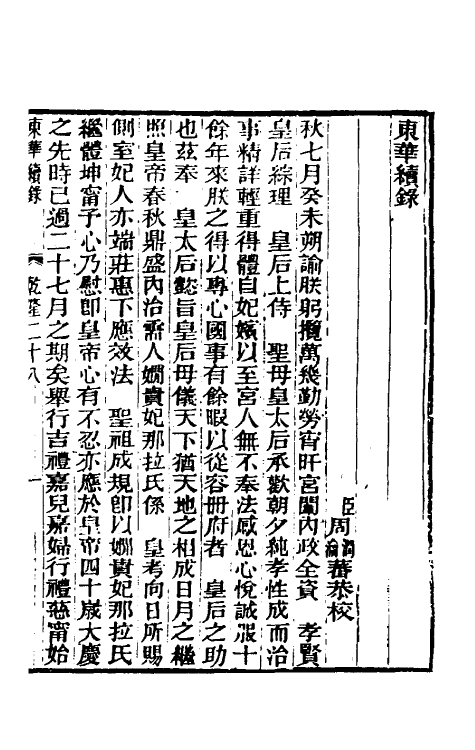 東華續錄
臣周潤蕃周瀹蕃恭校
秋七月癸未朔諭朕躬攬萬幾勤勞宵旰宮闈內政全資　孝賢
皇后綜理　皇后上侍　聖母皇太后承歡朝夕純孝性成而治
事精詳輕重得體自妃嬪以至宮人無不奉法感恩心悅誠服十
餘年來朕之得以專心國事有餘暇以從容冊府者　皇后之助
也茲奉　皇太后懿旨皇后母儀天下猶天地之相成日月之繼
照皇帝春秋鼎盛內治需人嫻貴妃那拉氏係　皇考向日所賜
側室妃人亦端莊惠下應效法　聖祖成規即以嫻貴妃那拉氏
繼體坤甯予心乃慰即皇帝心有不忍亦應於皇帝四十歲大慶
之先時已過二十七月之期矣舉行吉禮嘉兒嘉婦行禮慈甯始
東華續錄　乾隆二十八　一